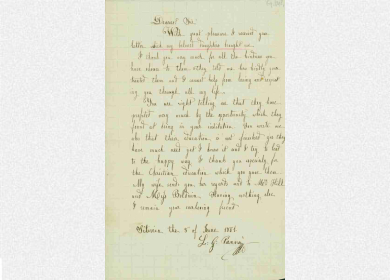 Dearest Sir.
With great pleasure I received your
letter which my beloved daughters brought me.
I thank you very much for all the kindness you
have shown to them. they told me how kindly you
treated them and I cannot help from loving and respect
ing you through all my life.
You are right telling me that they have
profited very much by the opportunity which they
found at being in your institution. You wrote me
also that their education is not finished yes they
have much need yet I know it and I try to lead
to the happy way. I thank you specially for
the Christian education which you gave them.
My wife sends you her regards and to Mrs
and Miss Baldwin. Having nothing else
I remain your everloving friend
the 5 of June 1878
L. G.